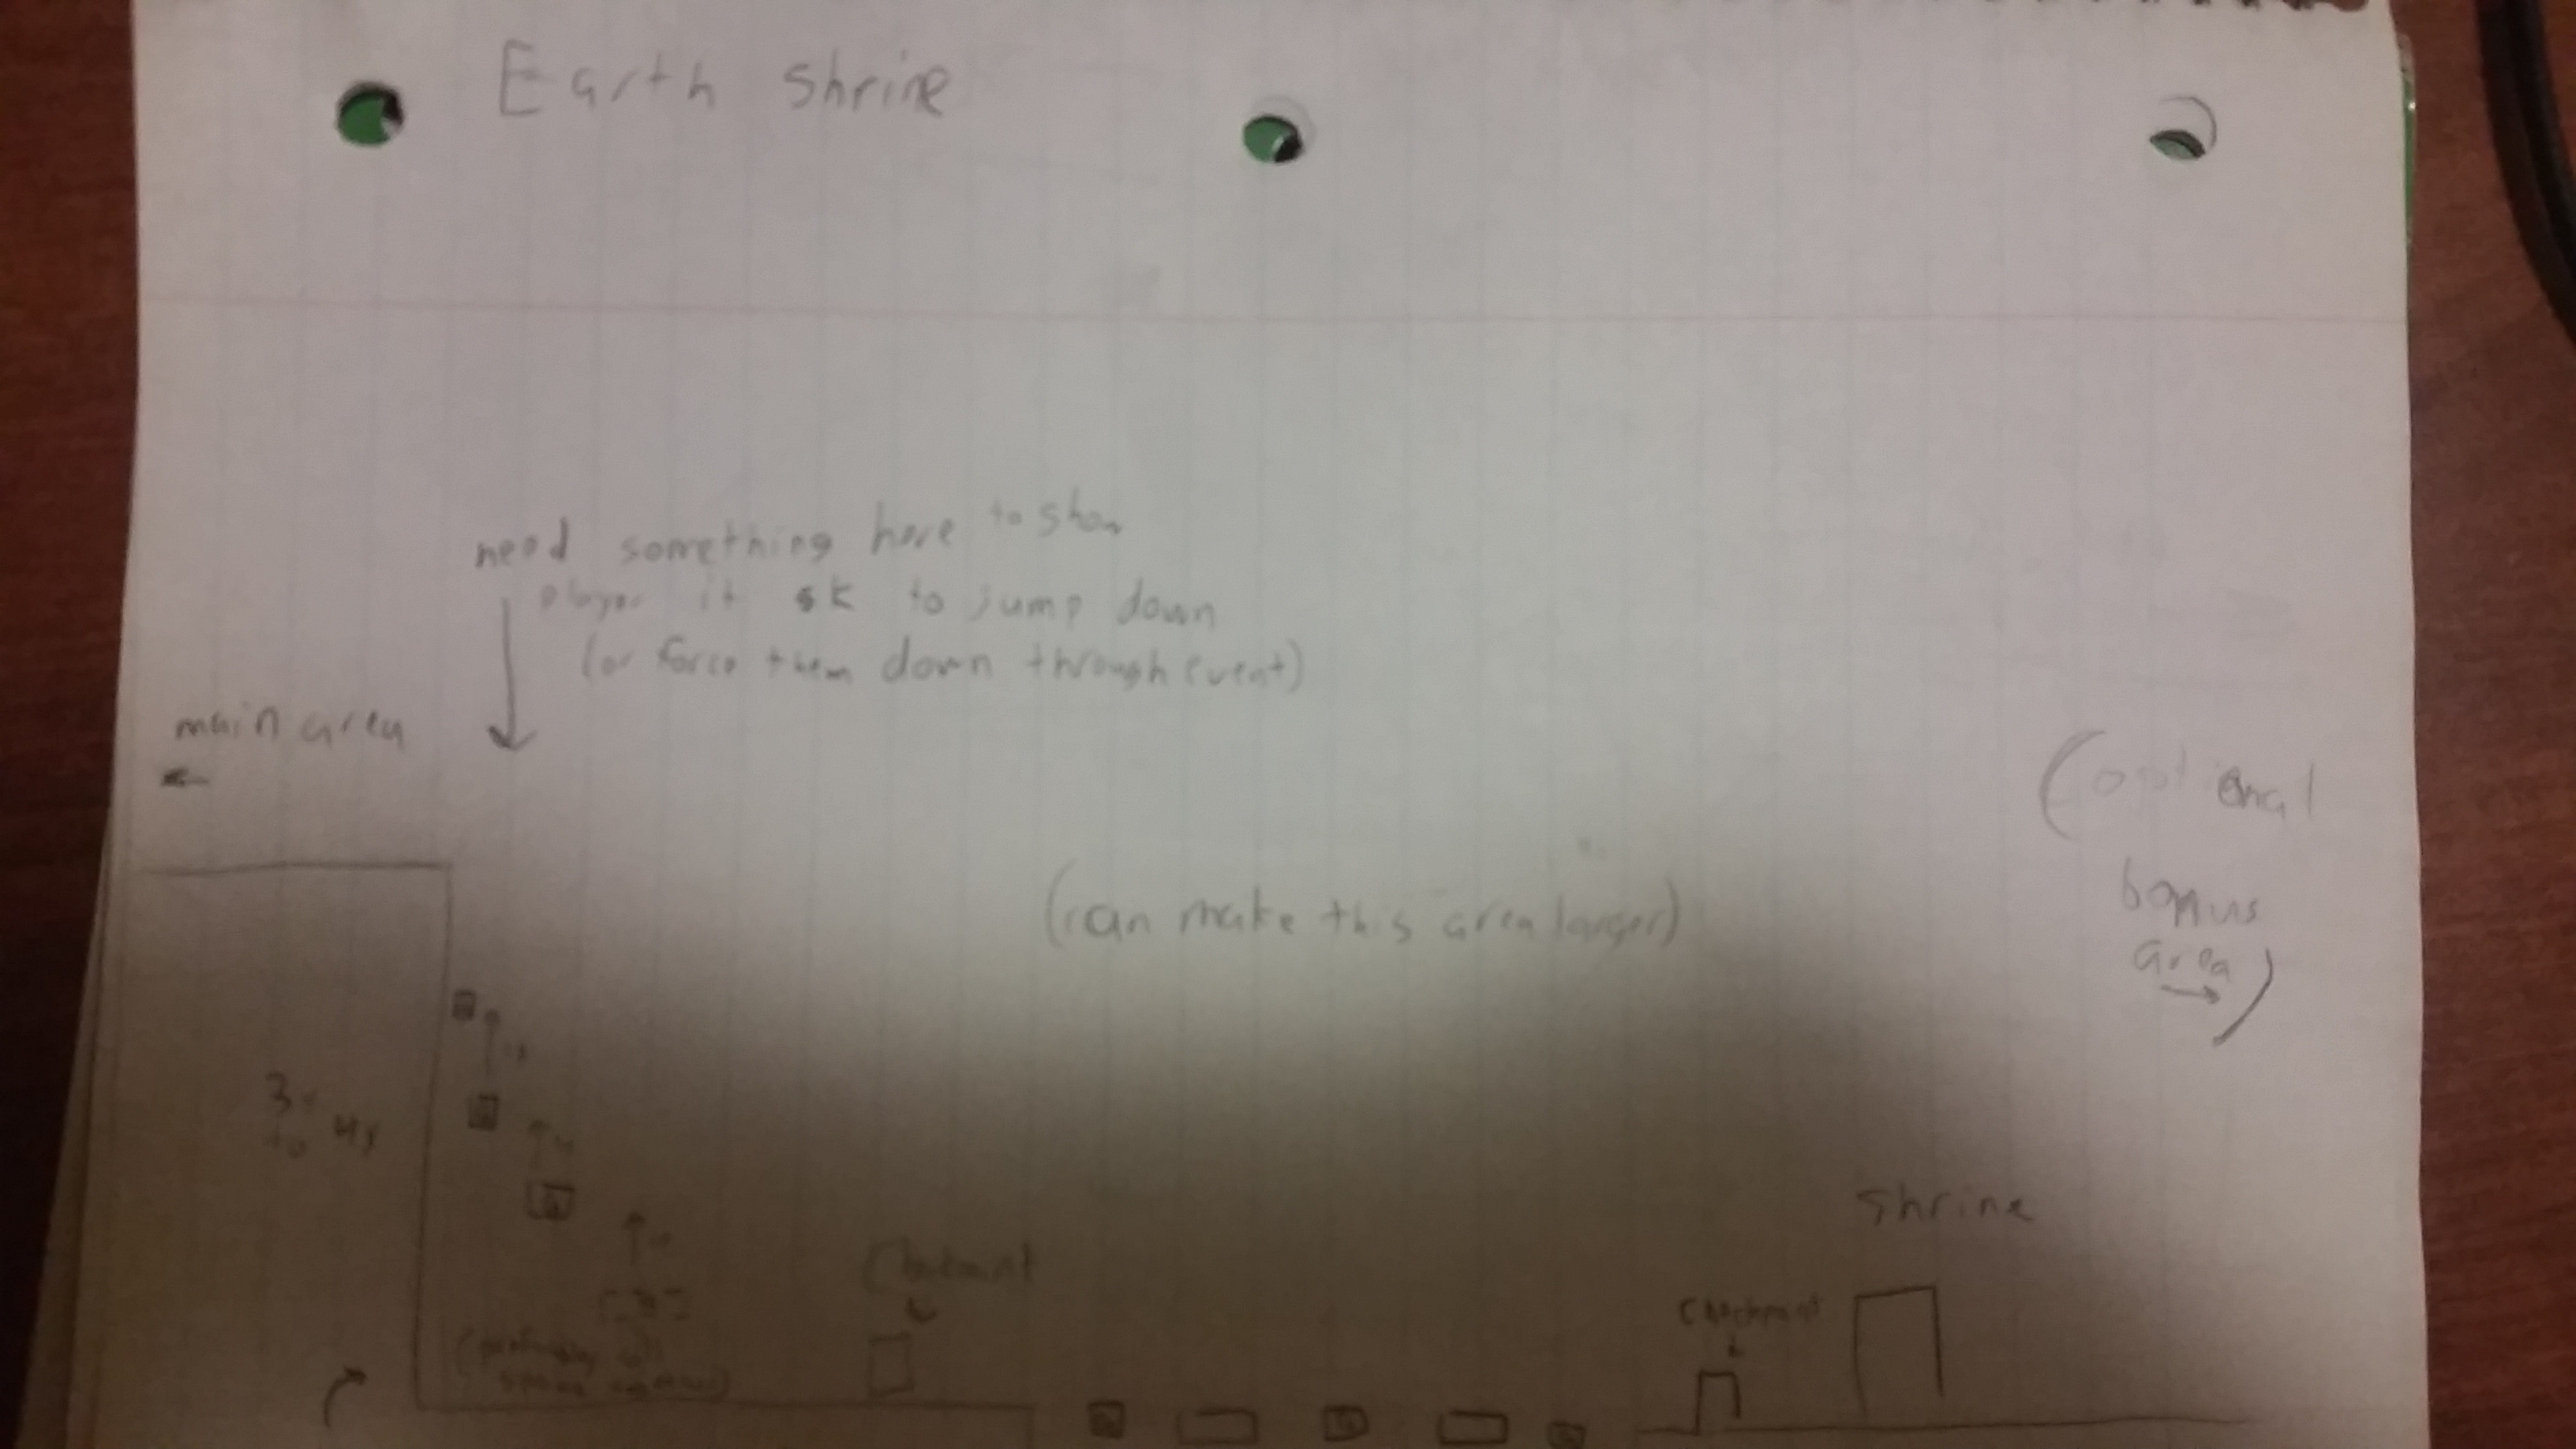 Earth shrine
need something here to show
player it ok to jump down
(or force them down through event)
main area
(optional
bonus
area)
(can make this area larger)
3x
to 4x
shrine
Checkpoint
Checkpoint